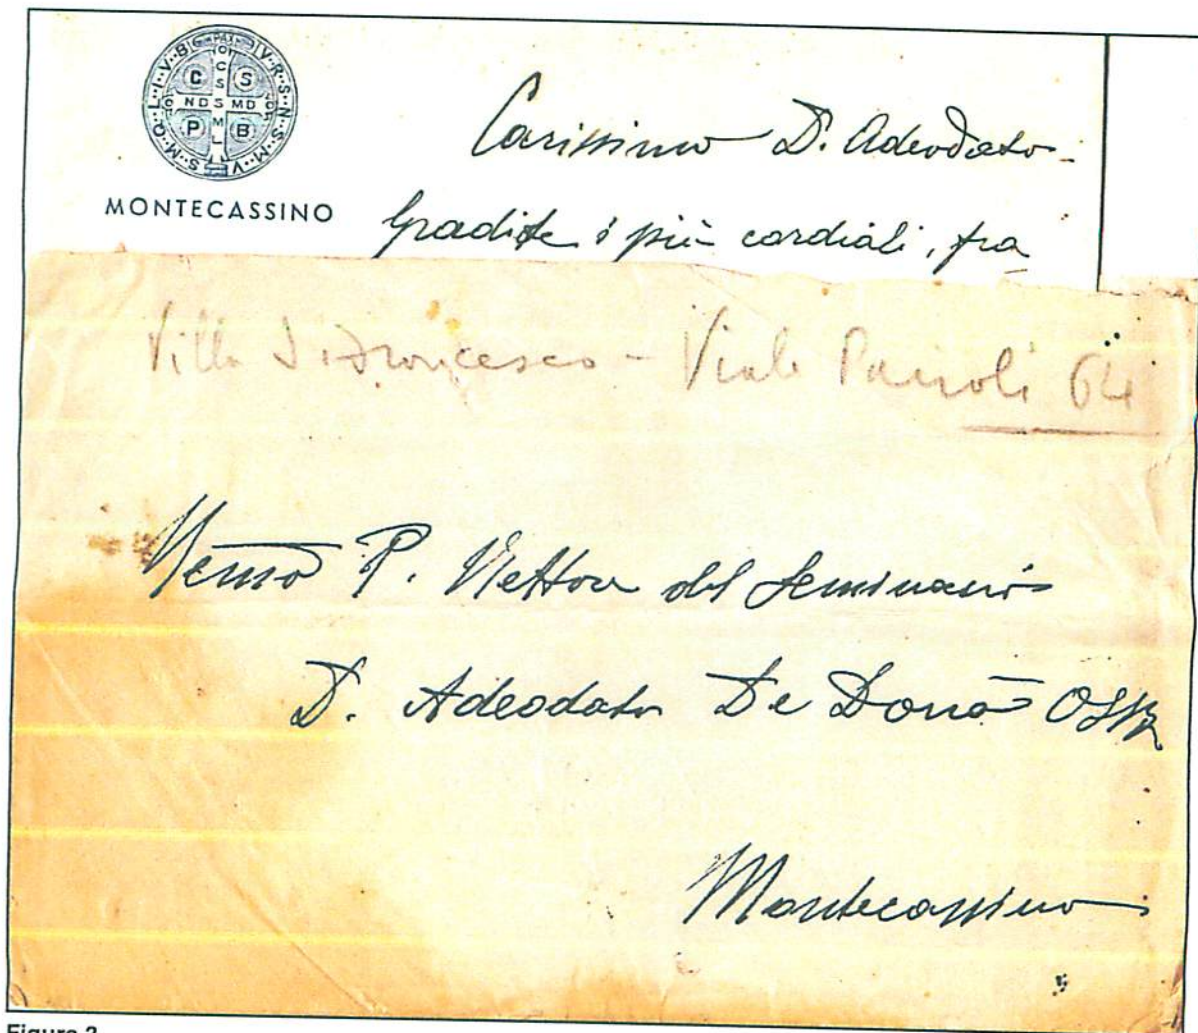 PAX
V·R·S·N·S·M·V
S·M·Q·L·I·V·B
C S
C
S
S
N D S M D
M
L
P B
MONTECASSINO
Carissimo D. Adeodato
Gradite i più cordiali, fra
Villa S. Francesco - Viale Parioli 64
P. Rettore del Seminario
D. Adeodato De Donà OSB
Montecassino
Figura 2